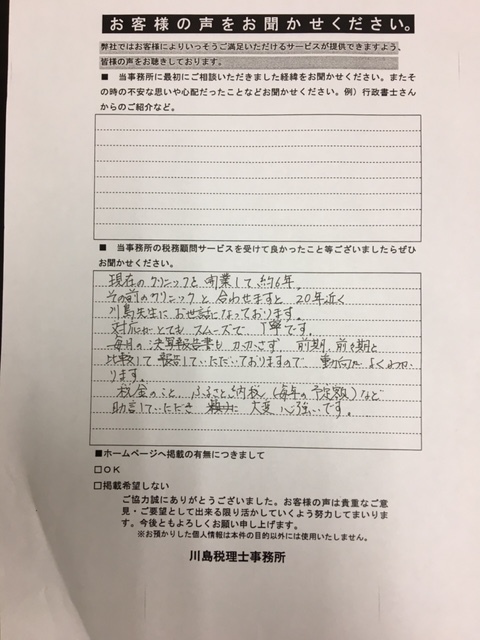 お客様の声をお聞かせください。
弊社ではお客様によりいっそうご満足いただけるサービスが提供できますよう、
皆様の声をお聴きしております。
■ 当事務所に最初にご相談いただきました経緯をお聞かせください。またそ
の時の不安な思いや心配だったことなどお聞かせください。例）行政書士さん
からのご紹介など。
■ 当事務所の税務顧問サービスを受けて良かったこと等ございましたらぜひ
お聞かせください。
現在のクリニックを開業して約6年。
その前のクリニックと合わせますと20年近く
川島先生にお世話になっております。
対応がとてもスムーズで、丁寧です。
毎月の決算報告書も欠かさず、前期、前々期と
比較して報告していただいておりますので、動向がよくわか
ります。
税金のこと、ふるさと納税（毎年の予定額）など
助言していただき 大変心強いです。
■ホームページへ掲載の有無につきまして
□OK
□掲載希望しない
ご協力誠にありがとうございました。お客様の声は貴重なご意
見・ご要望として出来る限り活かしていくよう努力してまいりま
す。今後ともよろしくお願い申し上げます。
※お預かりした個人情報は本件の目的以外には使用いたしません。
川島税理士事務所